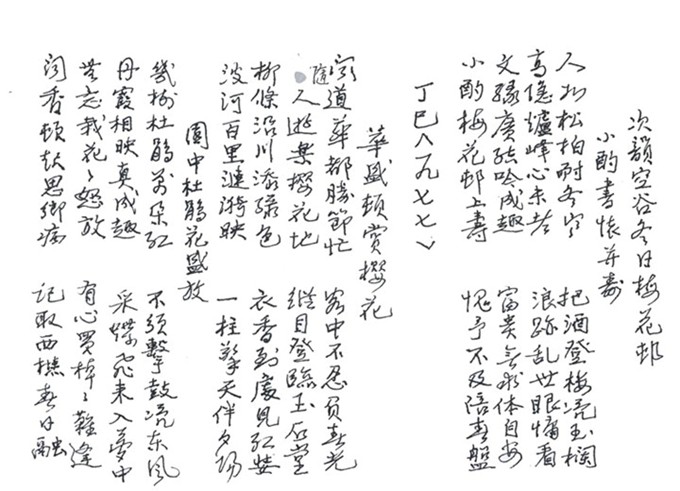 次韻空谷冬日梅花邨
小酌書懷并壽
人如松柏耐冬寒 把酒登樓凭玉欄
高隱爐峰心未老 浪跡乱世眼慵看
文緣廣結吟成趣 富貴無求体自安
小酌梅花邨上壽 愧予不及陪春盤
丁巳(一九七七)
華盛頓賞櫻花
聞道華都勝節忙 客中不忍負春光
隨人遊樂櫻花地 縱目登臨玉石堂
柳條沿川添綠色 衣香到處見紅妝
波河百里漣漪映 一柱擎天伴夕陽
園中杜鵑花盛放
幾樹杜鵑萬朵紅 不須擊鼓凭东風
丹霞相映真成趣 采蝶飛来入夢中
無意栽花々怒放 有心買棹々難逢
闻香頓起思鄉病 記取西樵春日融